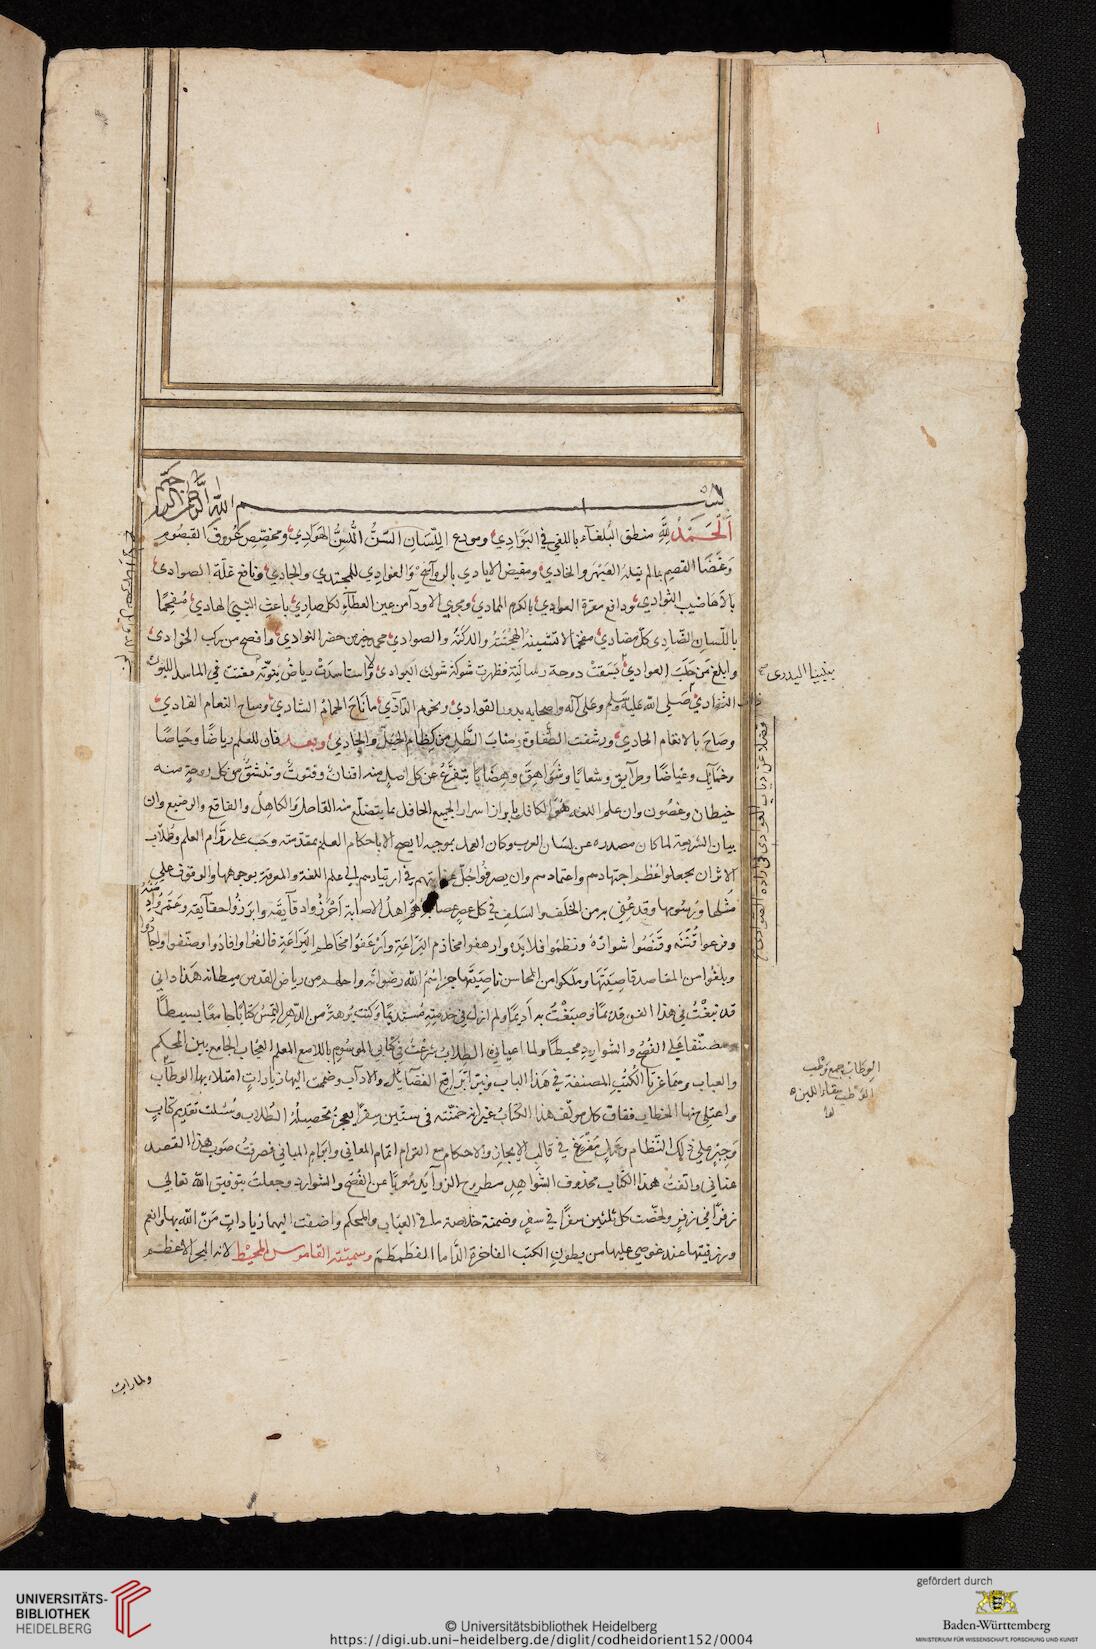 بسم الله الرحمن الرحيم
الحَمدُ لله منطق البُلغآء باللغى في البَوَادِي ومودع اللِّسَانِ السَّنُّ اللُّسُنُ الهَوَادِي ومخصِّص عُروق القيصُوم
وغضَا القصيم بمالم ينله العَبهَر والجادي ومفيض الايادي بالروآئحُ والغوادِي للمجتدي والجادي وناقع غلّة الصوادي
بالاهاضيب الثوادي ودافع معرّة العوادي بالكرم الممادي ومجري الاودآء من عين العطآءِ لكل صادي باعث النبيّ الهادي مُفحِمًا
باللّسانِ الضّادي كلّ مضادي مفخمًا لاتشينهُ الهُجنَةُ واللكنةُ والضوادي محمد خيرِ من حضر النوادي وافصح من ركب الخوادي
وابلغ مَن حلَبَ العوادي بَسَقتْ دوحة رسالتِه فظهرت شوكةُ شوك البوادي ولا استاسدَتْ رياضُ نبوّته فعنتت في الماسد اللبوث
العَوادي صَلى الله عليه وسَلم وعَلى آله واصحابه بدور القوادي ونجوم الدآدي ما ناحَ الحمامُ الشادي وساح النعام القادي
وصَاحَ بالانغام الحادي ورشفت الطُّفاوة رضابَ الطّلِ من كظام الجُلّ والجادي وبعد فان للعلم رياضًا وحياضًا
وخمآيل وغياضًا وطرآيق وشعابًا وشَواهِقَ وهِضَابًا يتفرّع عن كل اصلٍ منه افنانٌ وفنونٌ وتنشقّ عن كل دوحةٍ منه
خيطان وغصُون وان علم اللغة هُوَ الكافل بابراز اسرار الجميع الحافل بما يتضلّع منه القاحل والكاهِل والفاقع والرضيع وان
بيان الشريعة لما كان مصدره عن لسَان العرب وكان العمل بموجبه لا يصح الا باحكام العلم بمقدّمته وجَب على روّام العلم وطُلّاب
الاثر ان يجعلوا عُظم اجتهادهم واعتمادهم وان يصرفُوا جُلّ عنايتهم في ارتيادهم الى علم اللغة والمعرفة بوجوهها والوقوف على
مُثُلها ورسُومها وقد عُنِيَ به من الخلَفِ والسَلفِ في كل عصرٍ عصابة هُم اهلُ الاصابة احرَزُوا دقآيقَه وابرَزُوا حقآيقه وعمَرُوا دِمَنَهُ
وفرعُوا قُنَنَه وقَنَصُوا شواردَهُ ونظمُوا قلايدَه وارهفوا مخاذم البَراعَةِ وارْعَفوُا مخاطم اليَراعَةِ فالفوا وافادُوا وصنّفوا واجادوا
وبلغُوا من المقاصد قاصِيَتَهَا وملكوا من المحاسن ناصِيَتَها جزاهُمُ الله رضوانَه واحلهم من رياض القدس ميطانه هَذا واني
قد نبغْتُ في هذا الفن قديمًا وصبَغْتُ به أديمًا ولم ازل في خدمتهِ مستديمًا وكنتُ بُرهةً من الدّهرِ التمسُ كتابًا جامعًا بسيطًا
ومصنّفًا على الفُصُح والشوارِدِ محيطًا ولما اعياني الطلاب شرَعْتُ في كتابي الموسُوم باللامع المعلم العُجاب الجامع بين المحكم
والعباب وهمَا غرّتا الكُتُب المصنفة في هذا الباب ونيّرا بَرَاقع الفضآيل والاداب وضممتُ اليهما زياداتٍ امتلاء بها الوطاب
واعتلى منها الخطاب ففاق كل مؤلّف هذا الكتابُ غير انه خمنْته في ستين سفرًا يعجزُ تحصيلهُ الطُلاب وسُئلتُ تقديم كتابٍ
وجيز على ذلك النظام وعَملٍ مُفرّغ في قالبِ الايجاز والاحكام مع التزام اتمام المعاني وابرام المباني فصرفتُ صَوب هذا القصد
عناني والفتُ هذا الكتاب محذوف الشواهدِ مطروح الزوآيد مُعربًا عن الفُصُح والشوارد وجعلتُ بتوفيق الله تعالى
زفرًا في زفرٍ ولخّصت كل ثلثين سفرًا في سفرٍ وضمنتهُ خلاصة ما في العبَاب والمحكم واضفت اليهما زيادات مَنّ الله بها وانعم
ورزقنيها عند غوصي عليها من بطون الكتب الفاخرة الدّاما الغطَمطَمَ وسميّته القاموس المحيْط لانه البحر الاعظم
الوطاب جمع وطب
ولما رايت
UNIVERSITÄTS-
BIBLIOTHEK
HEIDELBERG
© Universitätsbibliothek Heidelberg
https://digi.ub.uni-heidelberg.de/diglit/codheidorient152/0004
gefördert durch
Baden-Württemberg
MINISTERIUM FÜR WISSENSCHAFT, FORSCHUNG UND KUNST